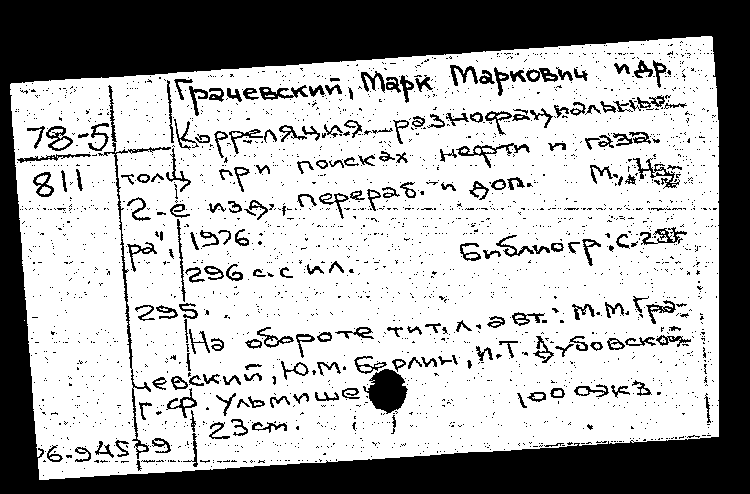 Грачевский, Марк Маркович и др.
78-5 Корреляция разнофациальных
811 толщ при поисках нефти и газа.
2-е изд., перераб. и доп. М., „Нед-
ра", 1976.
296 с. с ил. Библиогр.: с.
295.
На обороте тит. л. авт.: М.М. Гра-
чевский, Ю.М. Берлин, И.Т. Дубовской
Г.Ф. Ульмишек
23 см. 1000 экз.
76-94539